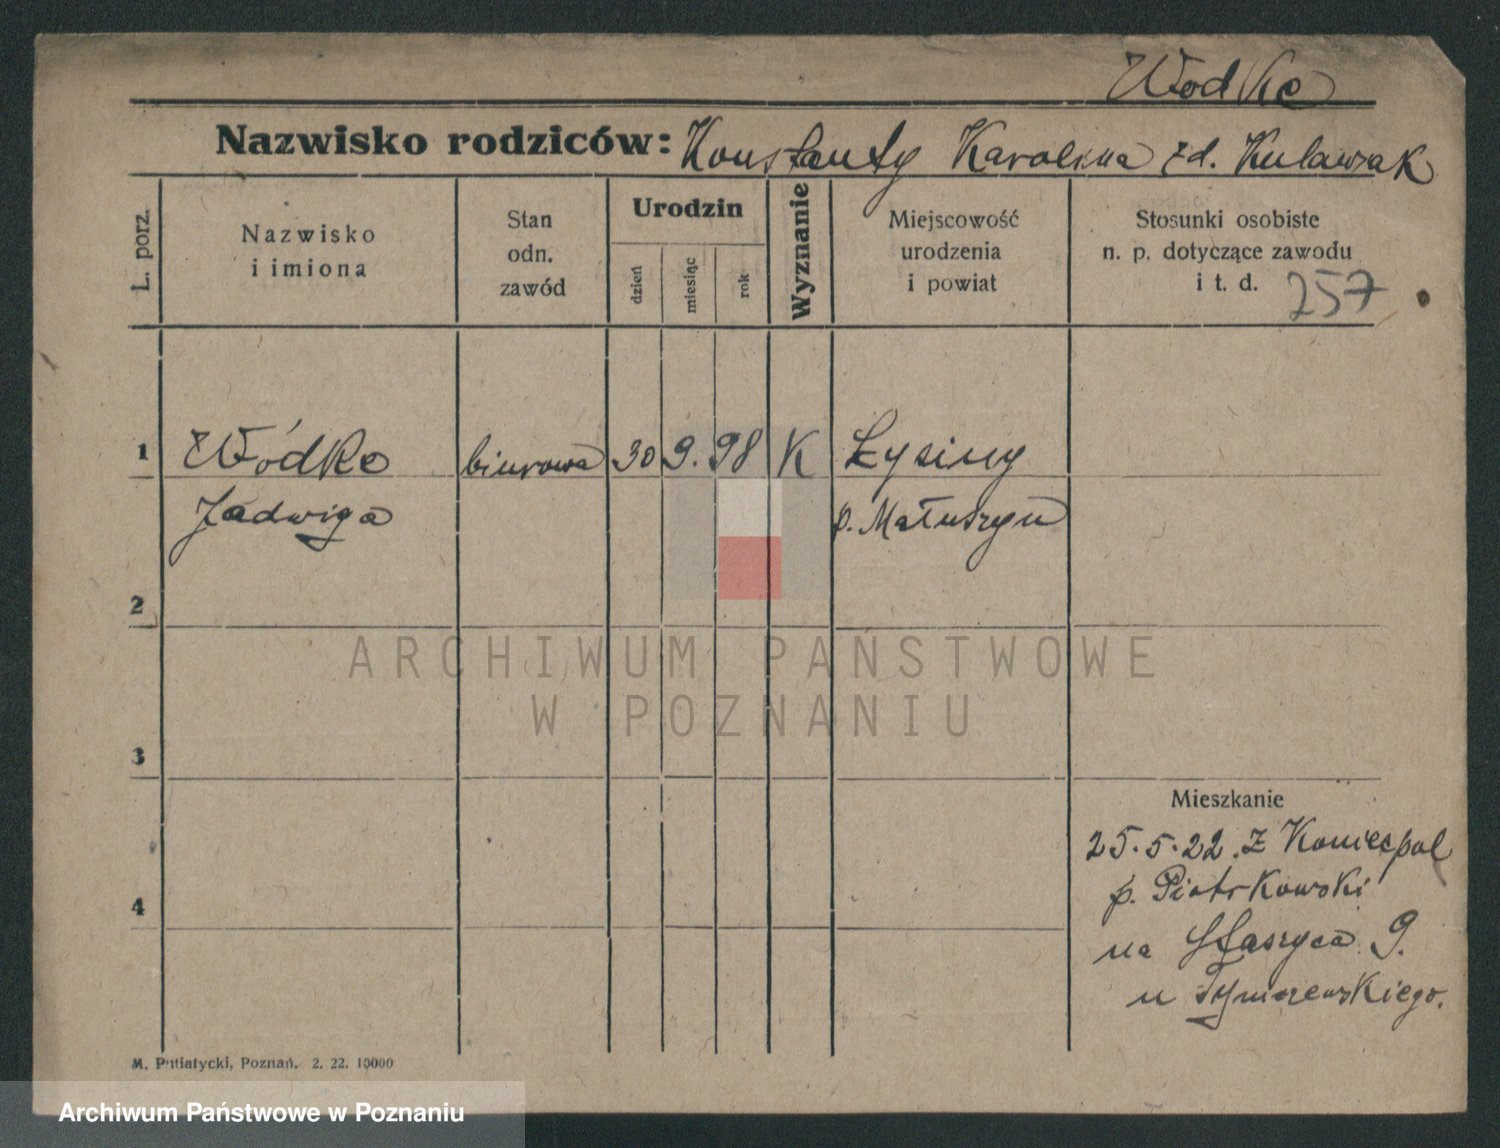 Wodke
Nazwisko rodziców: Konstanty Karolina zd. Kulawzak
L. porz.
Nazwisko
i imiona
Stan
odn.
zawód
Urodzin
dzień
miesiąc
rok
Wyznanie
Miejscowość
urodzenia
i powiat
Stosunki osobiste
n. p. dotyczące zawodu
i t. d.
257
1 Wódke biurowa 30 9. 98 K Łysiny
Jadwiga p. Małuszyn
2
ARCHIWUM PAŃSTWOWE
W POZNANIU
3
Mieszkanie
25.5.22. z Koniecpol
p. Piotrkowski
4
na Staszyca 9.
u Tymszewskiego.
M. Putiatycki, Poznań. 2. 22. 10000
Archiwum Państwowe w Poznaniu